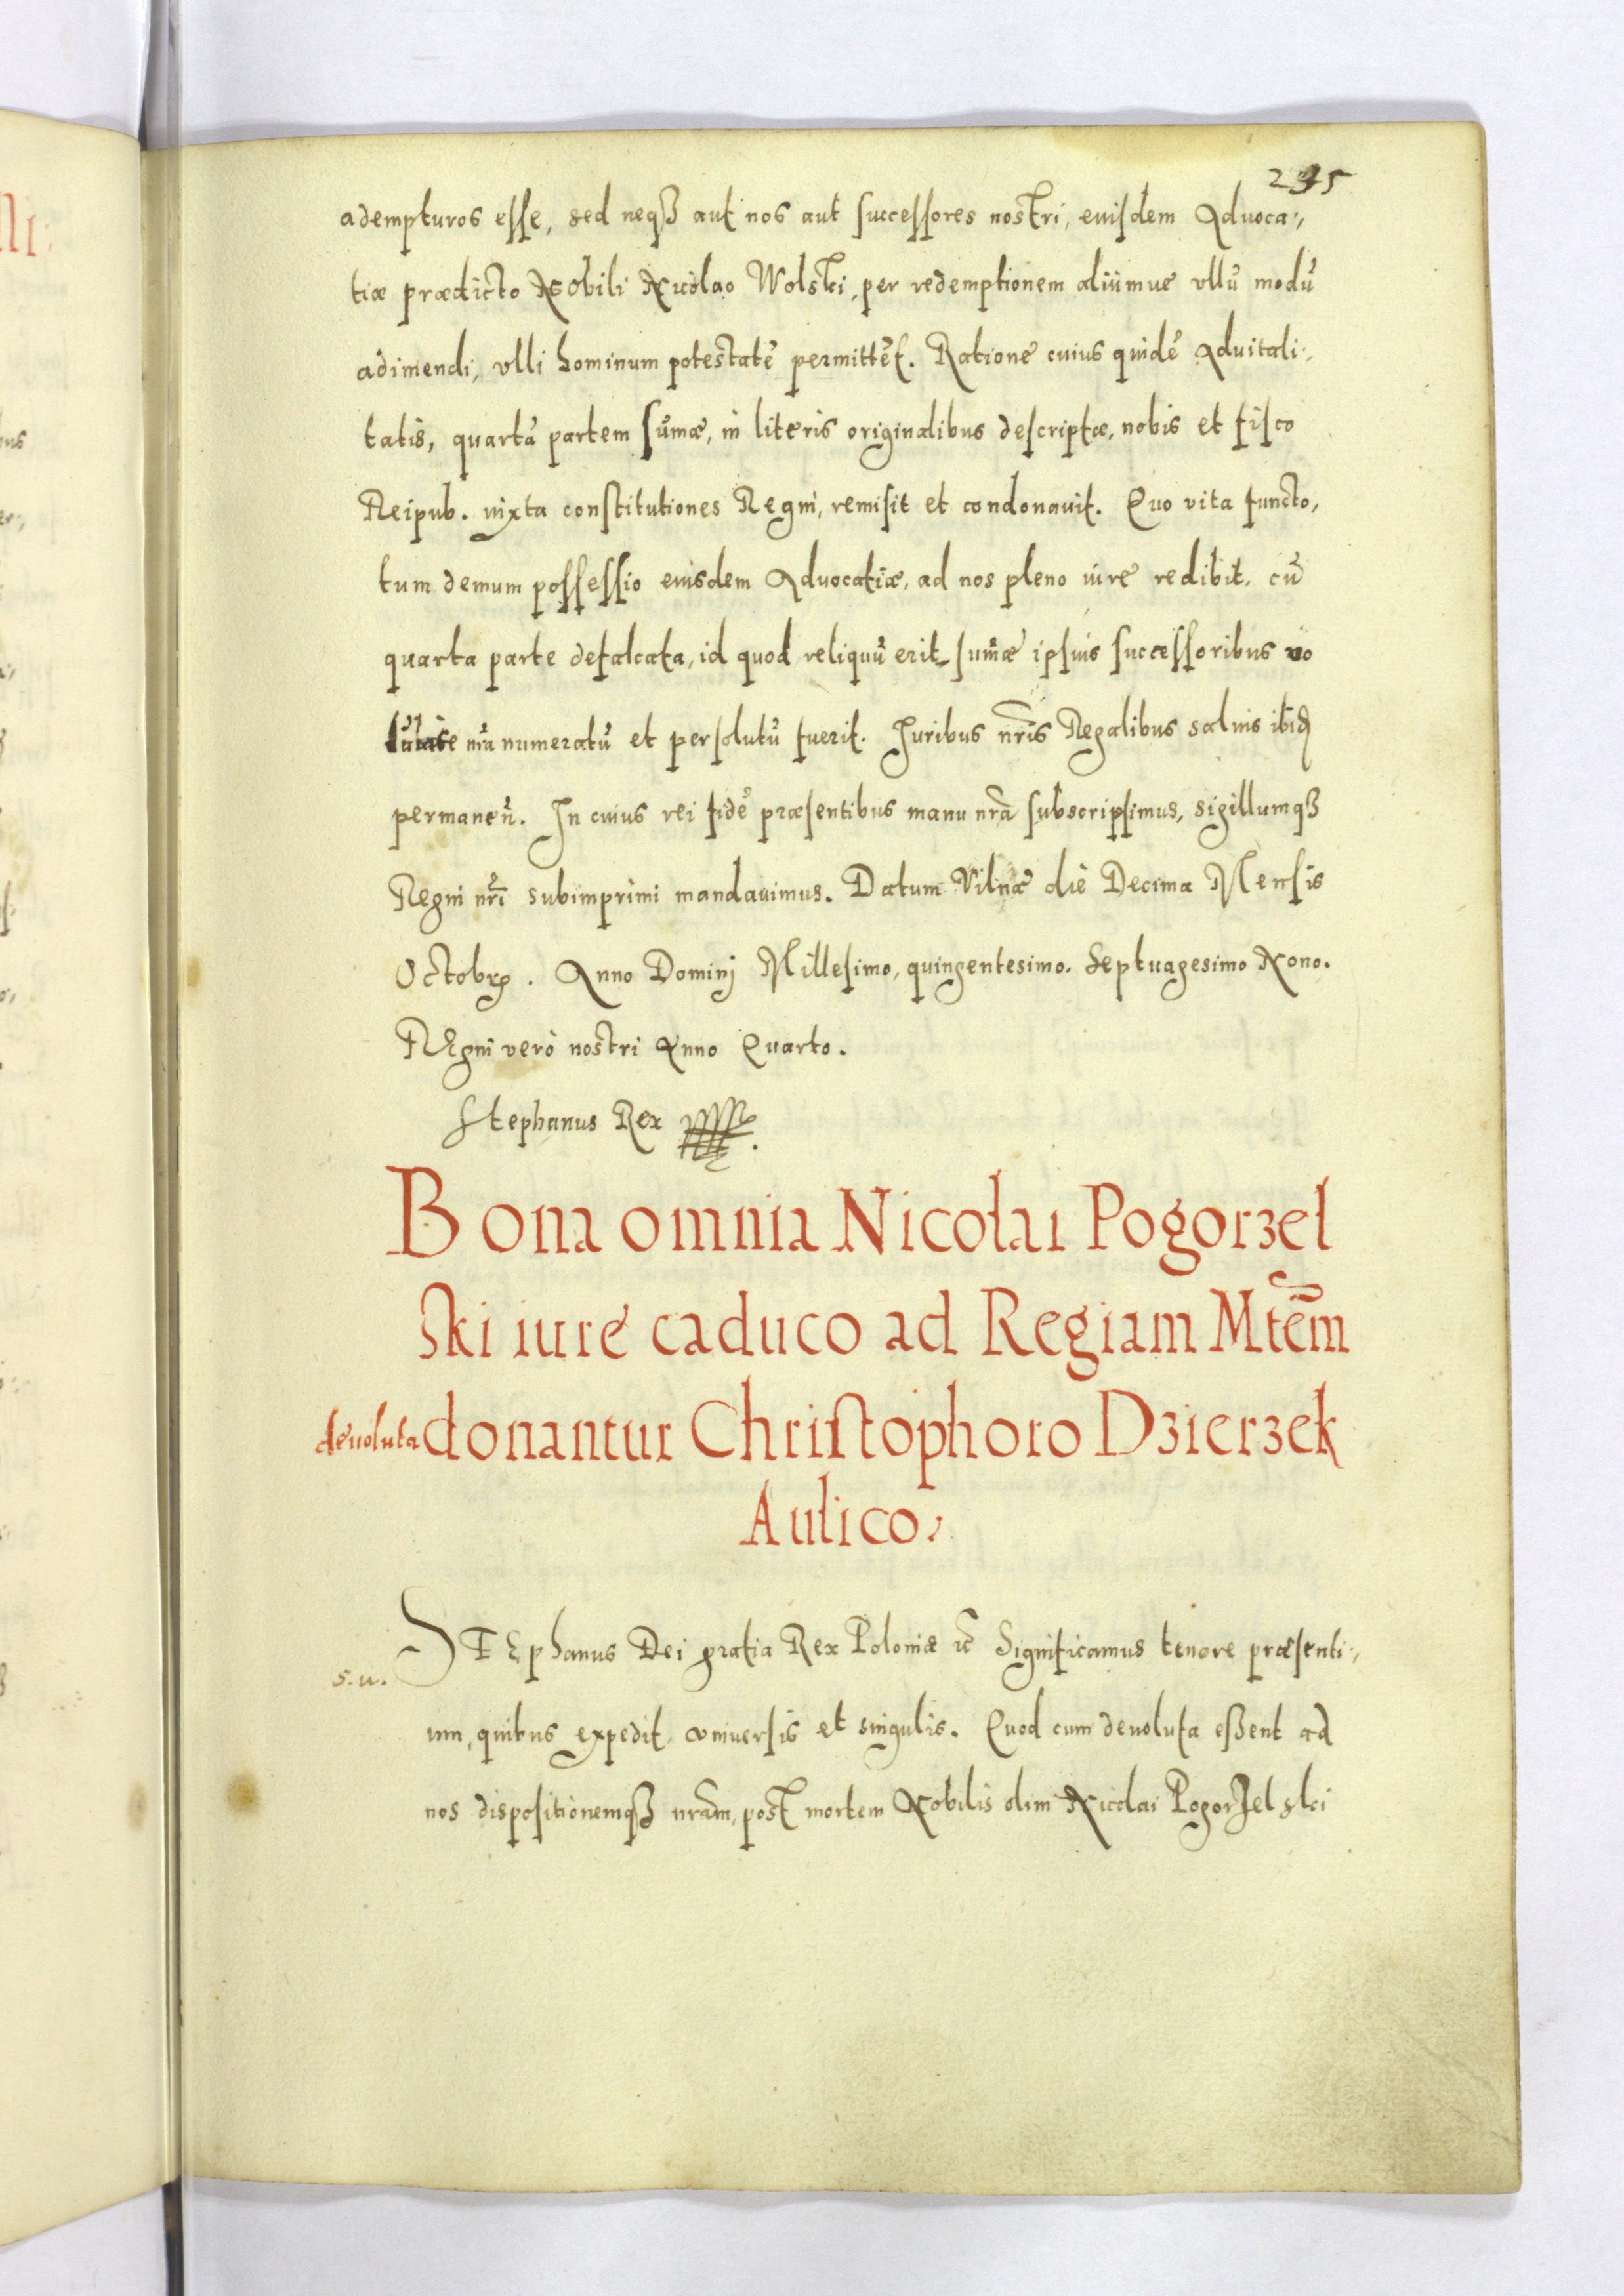 235
adempturos esse, sed neqꝫ aut nos aut successores nostri, eiusdem Aduoca-,
tiæ prædicto Nobili Nicolao Wolski, per redemptionem aliumue vllũ modũ
adimendi, vlli hominum potestatẽ permittẽt. Ratione cuius quidẽ Aduitali,
tatis, quartã partem sũmæ, in literis originalibus descriptæ, nobis et fisco
Reipub. iuxta constitutiones Regni, remisit et condonauit. Quo vita functo,
tum demum possessio eiusdem Aduocatiæ, ad nos pleno iure redibit. cũ
quarta parte defalcata, id quod reliquũ erit summæ ipsius successoribus
numeratũ et persolutũ fuerit. Juribus nr̃is Regalibus saluis ibid
permaneñ. In cuius rei fidẽ præsentibus manu nrã subscripsimus, sigillumqꝫ
Regni nrĩ subimprimi mandauimus. Datum Vilnæ die Decima Mensis
Octobr. Anno Dominj Millesimo, quingentesimo. Septuagesimo Nono.
REgni verò nostri Anno Quarto.
Stephanus Rex
Bona omnia Nicolai Pogorzel
ski iure caduco ad Regiam Mtẽm
deuoluta donantur Christophoro Dzierzek
Aulico,
STEphanus Dei gratia Rex Poloniæ ẽ Significamus tenore præsenti,
s.u.
um, quibus expedit, vniuersis et singulis. Quod cum deuoluta eßent ad
nos dispositionemqꝫ nrãm, post mortem Nobilis olim Nicolai Pogorzelski